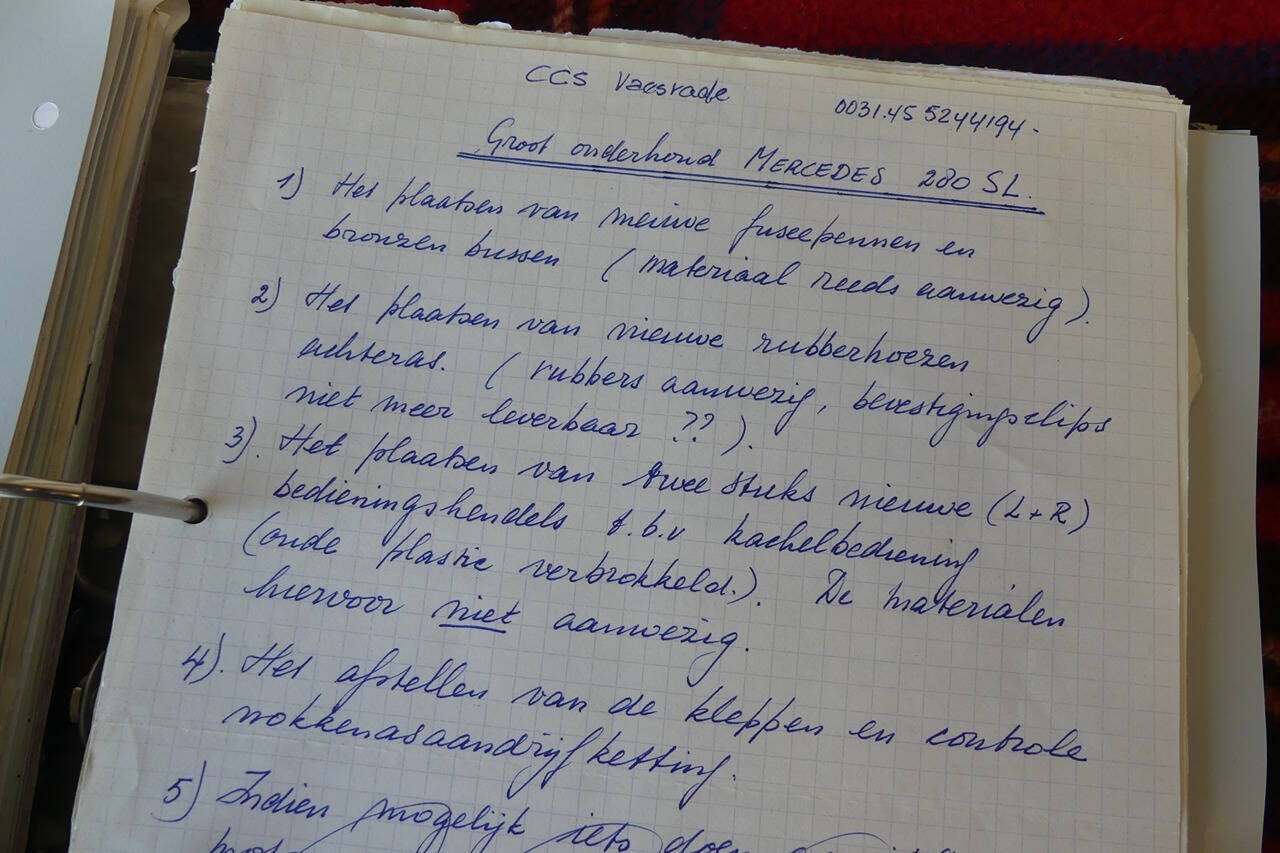 CCS Vaesrade 0031.45 5244194-
Groot onderhoud MERCEDES 280 SL.
1) Het plaatsen van nieuwe fuseepennen en
bronzen bussen (materiaal reeds aanwezig).
2) Het plaatsen van nieuwe rubberhoezen
achteras. (rubbers aanwezig, bevestigingsclips
niet meer leverbaar ??).
3). Het plaatsen van twee stuks nieuwe (L+R)
bedieningshendels t.b.v kachelbediening
(oude plastic verbrokkeld.). De materialen
hiervoor niet aanwezig.
4). Het afstellen van de kleppen en controle
nokkenasaandrijfketting.
5) Indien mogelijk iets doen